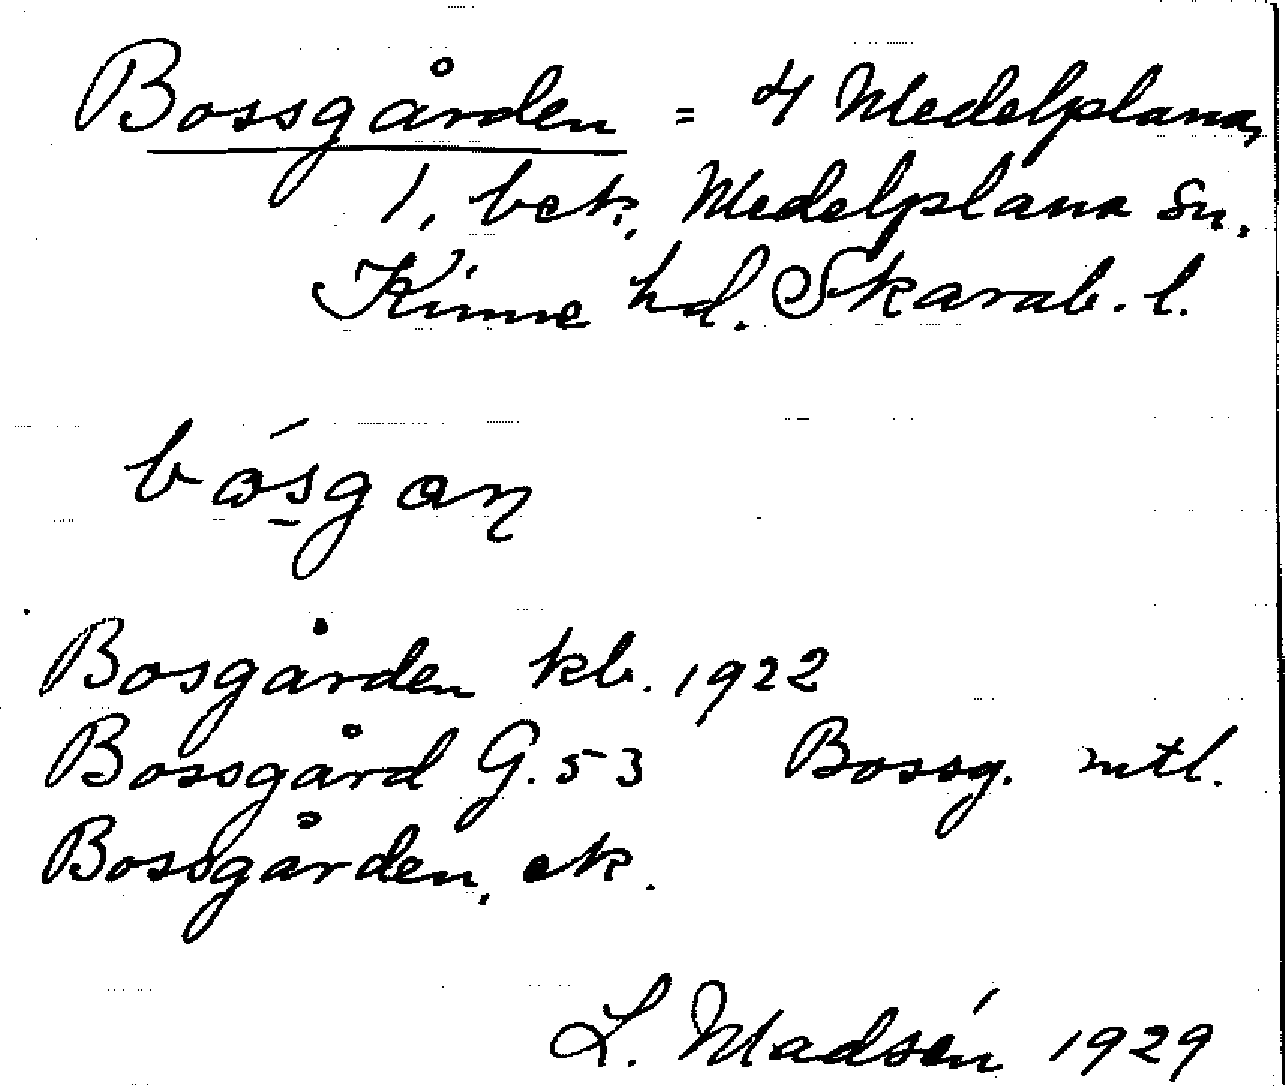 Bossgården = 4 Medelplana,
1, bek. Medelplana Sn.
Kinne hd. Skarab. l.
Bosgården kb. 1922
Bossgård G. 53 Bossg. mtl.
Bossgården, ek.
L. Madsén 1929